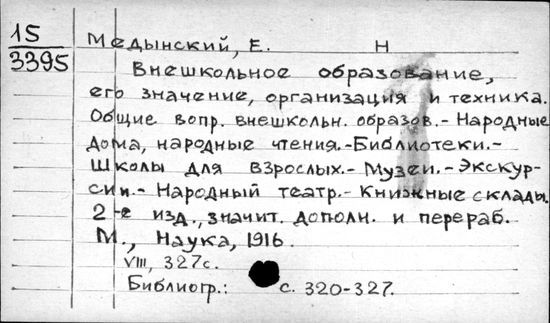 15
3395
Медынский, Е. Н
Внешкольное образование,
его значение, организация и техника.
Общие вопр. внешкольн. образов.- Народные
дома, народные чтения.-Библиотеки.-
Школы для взрослых.- Музеи.- Экскур-
сии.- Народный театр.- Книжные склады.
2-е изд., значит. дополн. и перераб.
М., Наука, 1916.
VIII, 327с.
Библиогр.: с. 320-327.